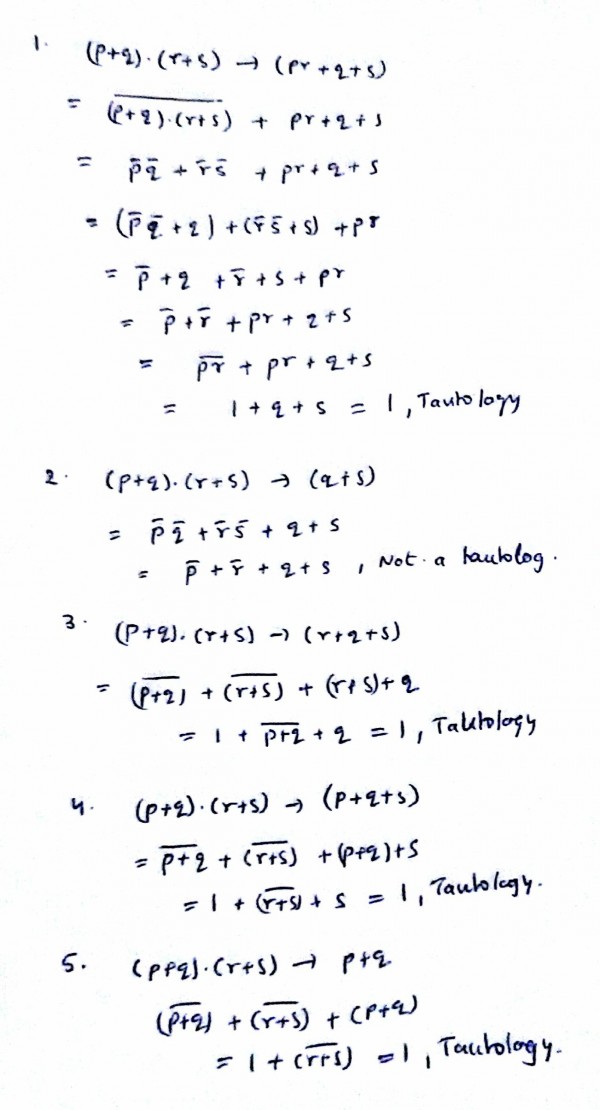 1. (p+q)·(r+s) → (pr+q+s)
= \overline{(p+q)·(r+s)} + pr+q+s
= p̄q̄ + r̄s̄ + pr+q+s
= (p̄q̄+q)+(r̄s̄+s)+pr
= p̄+q+r̄+s+pr
= p̄+r̄+pr+q+s
= \overline{pr} + pr+q+s
= 1+q+s = 1, Tautology
2. (p+q)·(r+s) → (q+s)
= p̄q̄+r̄s̄+q+s
= p̄+r̄+q+s, Not a tautolog.
3. (p+q)·(r+s) → (r+q+s)
= (\overline{p+q}) + (\overline{r+s}) + (r+s)+q
= 1 + \overline{p+q} + q = 1, Tautology
4. (p+q)·(r+s) → (p+q+s)
= \overline{p+q} + (\overline{r+s}) + (p+q)+s
= 1 + (\overline{r+s}) + s = 1, Tautology.
5. (p+q)·(r+s) → p+q
(\overline{p+q}) + (\overline{r+s}) + (p+q)
= 1 + (\overline{r+s}) = 1, Tautology.